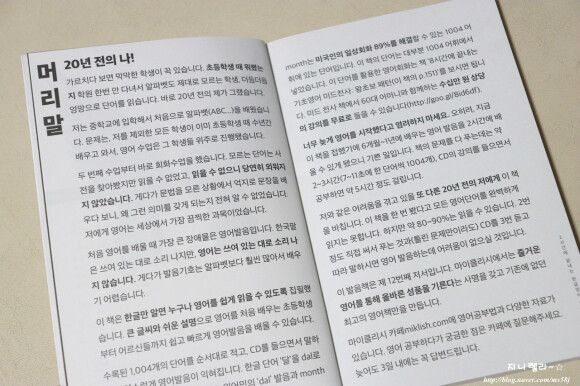 머리말
20년 전의 나!
가르치다 보면 막막한 학생이 꼭 있습니다. 초등학생 때 뭐했는
지 학원 한번 안 다녀서 알파벳도 제대로 모르는 학생, 더듬더듬
엉망으로 단어를 읽습니다. 바로 20년 전의 제가 그랬습니다.
저는 중학교에 입학해서 처음으로 알파벳(ABC...)을 배웠습니
다. 문제는, 저를 제외한 모든 학생이 이미 초등학생 때 수년간
배우고 와서, 영어 수업은 그 학생들 위주로 진행됐습니다.
두 번째 수업부터 바로 회화수업을 했습니다. 모르는 단어는 사
전을 찾아봤지만 읽을 수 없었고, 읽을 수 없으니 당연히 외워지
지 않았습니다. 게다가 문법을 모른 상황에서 억지로 문장을 배
우다 보니, 왜 그런 의미를 갖게 되는지 전혀 알 수 없었습니다.
저에게 영어는 세상에서 가장 끔찍한 과목이었습니다.
처음 영어를 배울 때 가장 큰 장애물은 영어발음입니다. 한국말
은 쓰여 있는 대로 소리 나지만, 영어는 쓰여 있는 대로 소리 나
지 않습니다. 게다가 발음기호는 알파벳보다 훨씬 많아서 배우
기 어렵습니다.
이 책은 한글만 알면 누구나 영어를 쉽게 읽을 수 있도록 집필했
습니다. 큰 글씨와 쉬운 설명으로 영어를 처음 배우는 초등학생
부터 어르신들까지 쉽고 빠르게 영어발음을 배울 수 있습니다.
수록된 1,004개의 단어를 순서대로 적고, CD를 들으면서 따라
하면 쉽게 영어발음이 익혀집니다. 한글 단어 '달'을 dal로
니다. 영단어의 'dal' 발음과 month
month는 미국인의 일상회화 89%를 해결할 수 있는 1004 어
휘에 있는 단어입니다. 이 책의 단어는 대부분 1004 어휘에서
넣었습니다. 이 단어를 활용한 영어회화는 책 '8시간에 끝내는
기초영어 미드천사: 왕초보 패턴(이 책의 p.151)'을 보시면 됩니
다. 미드 천사 책에서 60대 어머니와 함께하는 수십만 원 상당
의 강의를 무료로 들을 수 있습니다(http://goo.gl/8id6df).
너무 늦게 영어를 시작했다고 염려하지 마세요. 오히려, 지금
이 책을 접했기에 6개월~1년에 배우는 영어 발음을 2시간에 배
울 수 있게 됐으니 기쁜 일입니다. 책의 문제를 다 푸는데는, 약
2~3시간(7~11초에 한 단어씩 1004개), CD의 강의를 들으면서
공부하면 약 5시간 정도 걸립니다.
저와 같은 어려움을 겪고 있을 또 다른 20년 전의 저에게 이 책
을 바칩니다. 이 책을 한 번 봤다고 모든 영어단어를 완벽하게
읽지는 못합니다. 하지만 약 80~90%는 읽을 수 있습니다. 2번
정도 직접 써서 푸는 것과(틀린 문제만이라도) CD를 3번 듣고
따라 말하시면 영어 발음하는데 어려움이 없으실 것입니다.
이 발음책은 제 12번째 저서입니다. 마이클리시에서는 즐거운
영어를 통해 올바른 성품을 기른다는 사명을 갖고 기존에 없던
최고의 영어책만을 만듭니다.
마이클리시 카페miklish.com에 영어공부법과 다양한 자료가
있습니다. 영어 공부하다가 궁금한 점은 카페에 질문해주세요.
늦어도 3일 내에는 꼭 답변드립니다.
http://blog.naver.com/ms58j